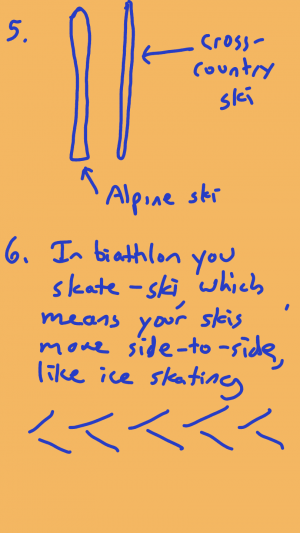 5.
cross-
country
ski
Alpine ski
6. In biathlon you
skate-ski, which
means your skis
move side-to-side,
like ice skating